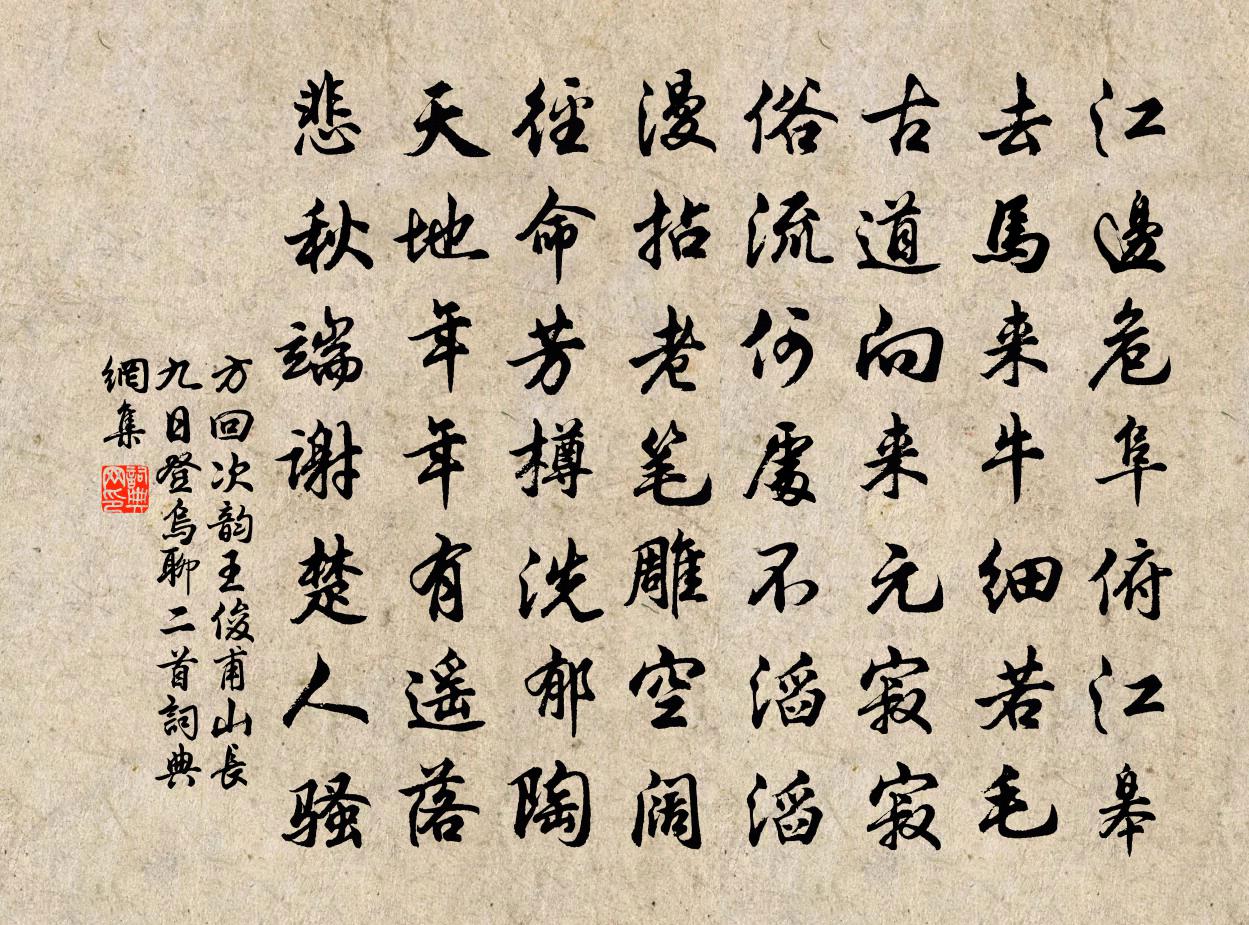 江邊危阜俯江皋
去馬来牛細若毛
古道向来元寂寂
俗流何處不滔滔
漫拈老笔雕空阔
徑命芳樽洗郁陶
天地年年有遥落
悲秋端谢楚人骚
方回次韵王俊甫山長
九日登烏聊二首詞典
網集
詞典網印